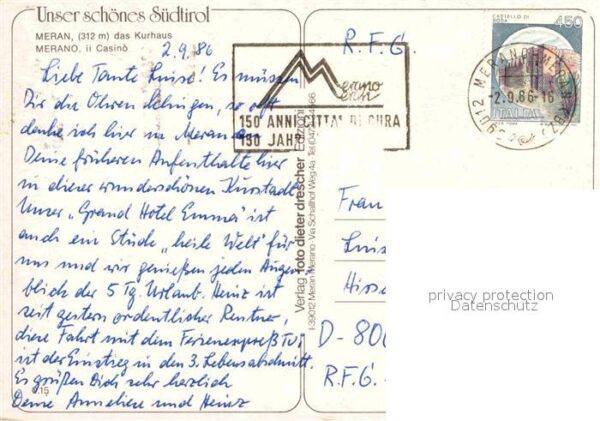 Unser schönes Südtirol
MERAN, (312 m) das Kurhaus
MERANO, il Casinò
2.9.86
Liebe Tante Luise! Es müssen
Dir die Ohren klingen, so oft
denke ich hier in Meran an
Deine früheren Aufenthalte hier
in dieser wunderschönen Kurstadt.
Unser „Grand Hotel Emma" ist
auch ein Stück „heile Welt" für
uns und wir genießen jeden Augen
blick der 5 Tg. Urlaub. Heinz ist
seit gestern ordentlicher Rentner,
diese Fahrt mit dem Ferienexpreß
ist der Einstieg in den 3. Lebensabschnitt.
Es grüßen Dich sehr herzlich
Deine Anneliese und Heinz
6.15
Verlag foto dieter drescher Edizioni
I-39012 Meran Merano-Via Schallhof Weg 4a
R.F.G.
Merano
Meran
150 ANNI CITTA' DI CURA
150 JAHR
CASTELLO DI
450
ITALIA
39012 MERANO-MERAN (BZ)
-2.9.86-16
Frau
Luis
Hisse
D-800
R.F.G.
privacy protection
Datenschutz